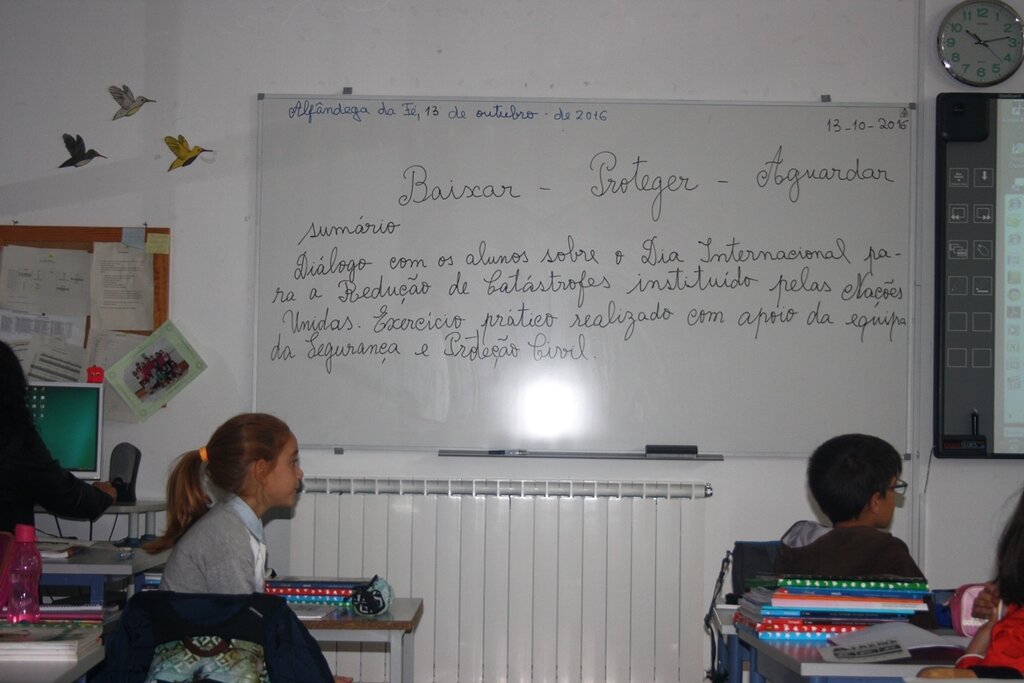 Alfândega da Fé, 13 de outubro de 2016
13-10-2016
Baixar - Proteger - Aguardar
sumário
Diálogo com os alunos sobre o Dia Internacional pa-
ra a Redução de Catástrofes instituído pelas Nações
Unidas. Exercício prático realizado com apoio da equipa
da Segurança e Proteção Civil.
10
11
12
1
2
3
4
5
6
7
8
9